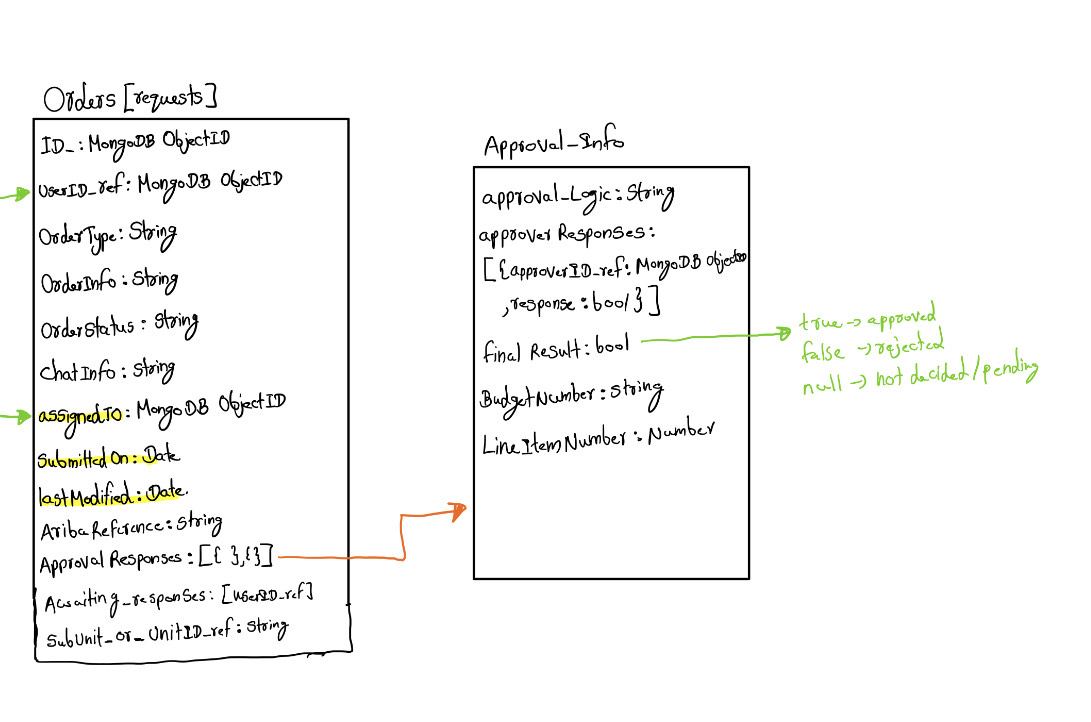 Orders [requests]
ID_: MongoDB ObjectID
UserID_ref: MongoDB ObjectID
OrderType: String
OrderInfo: String
OrderStatus: String
ChatInfo: String
assignedTo: MongoDB ObjectID
SubmittedOn: Date
lastModified: Date.
AribaReference: String
Approval Responses: [{ },{ }]
Awaiting_responses: [UserID_ref]
SubUnit_or_UnitID_ref: String
Approval_Info
approval_Logic: String
approver Responses:
[{approverID_ref: MongoDB Object
, response: bool}]
final Result: bool
BudgetNumber: String
LineItemNumber: Number
true -> approved
false -> rejected
null -> not decided/pending